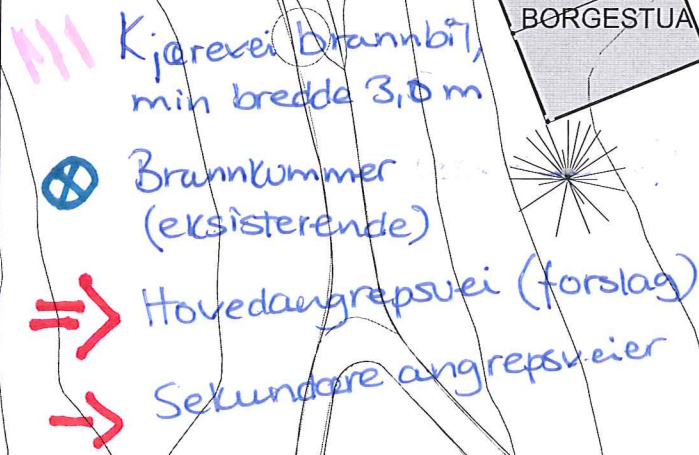 BORGESTUA
Kjørevei brannbil,
min bredde 3,0 m
Brannkummer
(eksisterende)
Hovedangrepsvei (forslag)
Sekundære angrepsveier